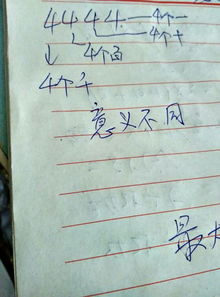 4444 4个一
4个十
4个百
4个千
意义不同
最大